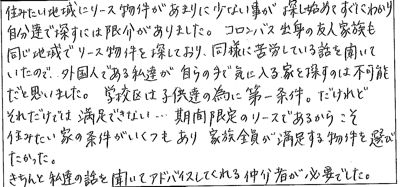 住みたい地域にリース物件があまりに少ない事が探し始めてすぐにわかり
自分達で探すには限界がありました。コロンバス出身の友人家族も
同じ地域でリース物件を探しており、同様に苦労している話を聞いて
いたので、外国人である私達が自らの手で気に入る家を探すのは不可能
だと思いました。学校区は子供達の為に第一条件。だけれど
それだけでは満足できない…期間限定のリースであるからこそ
住みたい家の条件がいくつもあり家族全員が満足する物件を選び
たかった。
きちんと私達の話を聞いてアドバイスしてくれる仲介者が必要でした。